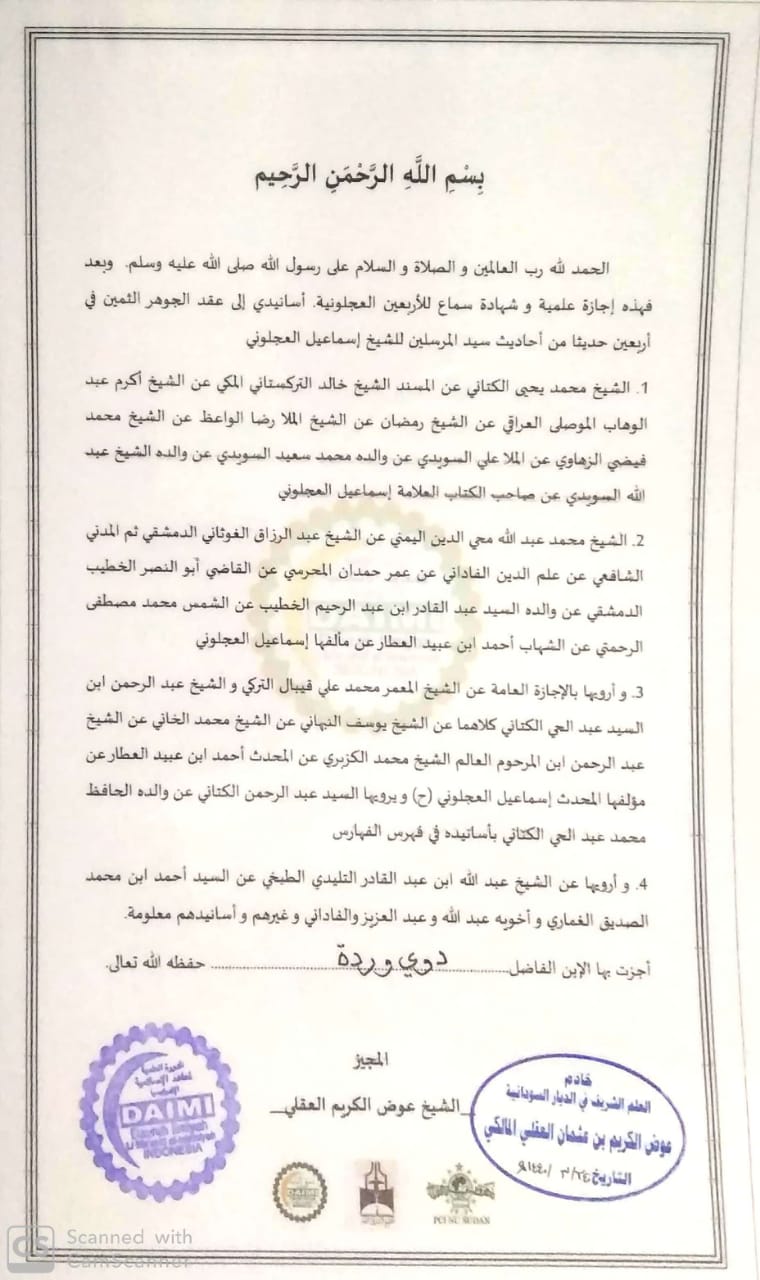 بِسْمِ اللَّهِ الرَّحْمَنِ الرَّحِيم
الحمد لله رب العالمين و الصلاة و السلام على رسول الله صلى الله عليه وسلم. وبعد
فهذه إجازة علمية و شهادة سماع للأربعين العجلونية. أسانيدي إلى عقد الجوهر الثمين في
أربعين حديثا من أحاديث سيد المرسلين للشيخ إسماعيل العجلوني
1. الشيخ محمد يحيى الكتاني عن المسند الشيخ خالد التركستاني المكي عن الشيخ أكرم عبد
الوهاب الموصلى العراقي عن الشيخ رمضان عن الشيخ الملا رضا الواعظ عن الشيخ محمد
فيضي الزهاوي عن الملا علي السويدي عن والده محمد سعيد السويدي عن والده الشيخ عبد
الله السويدي عن صاحب الكتاب العلامة إسماعيل العجلوني
2. الشيخ محمد عبد الله محي الدين اليمني عن الشيخ عبد الرزاق الغوثاني الدمشقي ثم المدني
الشافعي عن علم الدين الفاداني عن عمر حمدان المحرسي عن القاضي أبو النصر الخطيب
الدمشقي عن والده السيد عبد القادر ابن عبد الرحيم الخطيب عن الشمس محمد مصطفى
الرحمتي عن الشهاب أحمد ابن عبيد العطار عن مألفها إسماعيل العجلوني
3. و أرويها بالإجازة العامة عن الشيخ المعمر محمد علي قيبال التركي و الشيخ عبد الرحمن ابن
السيد عبد الحي الكتاني كلاهما عن الشيخ يوسف النبهاني عن الشيخ محمد الخاني عن الشيخ
عبد الرحمن ابن المرحوم العالم الشيخ محمد الكزبري عن المحدث أحمد ابن عبيد العطار عن
مؤلفها المحدث إسماعيل العجلوني (ح) و يرويها السيد عبد الرحمن الكتاني عن والده الحافظ
محمد عبد الحي الكتاني بأسانيده في فهرس الفهارس
4. و أرويها عن الشيخ عبد الله ابن عبد القادر التليدي الطبخي عن السيد أحمد ابن محمد
الصديق الغماري و أخويه عبد الله و عبد العزيز والفاداني و غيرهم و أسانيدهم معلومة.
أجزت بها الإبن الفاضل دوي وردة حفظه الله تعالى.
المجيز
الشيخ عوض الكريم العقلي
خادم
العلم الشريف في الديار السودانية
عوض الكريم بن عثمان العقلي المالكي
التاريخ ٢٤/ ٣/ ١٤٤٠هـ
DAIMI
INDONESIA
DAIMI
PCI NU SUDAN
CS Scanned with
CamScanner